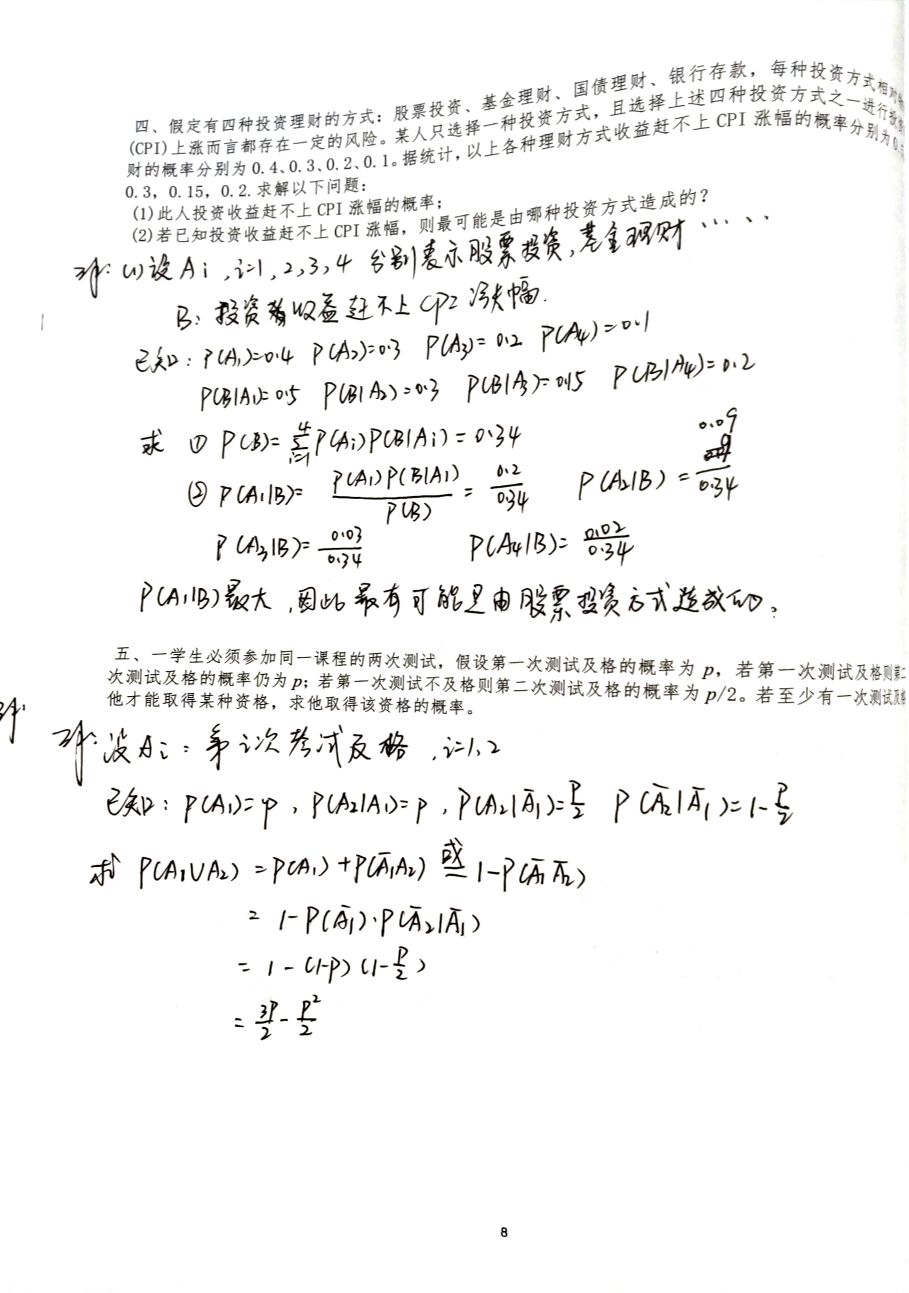 四、假定有四种投资理财的方式：股票投资、基金理财、国债理财、银行存款，每种投资方式相对
(CPI)上涨而言都存在一定的风险。某人只选择一种投资方式，且选择上述四种投资方式之一进行
财的概率分别为 0.4、0.3、0.2、0.1。据统计，以上各种理财方式收益赶不上 CPI 涨幅的概率分别为
0.3，0.15，0.2. 求解以下问题：
(1)此人投资收益赶不上 CPI 涨幅的概率；
(2)若已知投资收益赶不上 CPI 涨幅，则最可能是由哪种投资方式造成的？
解：(1)设 Ai，i=1，2，3，4 分别表示股票投资，基金理财 ……
B：投资收益赶不上CPI涨幅.
已知：P(A₁)=0.4 P(A₂)=0.3 P(A₃)=0.2 P(A₄)=0.1
P(B|A₁)=0.5 P(B|A₂)=0.3 P(B|A₃)=0.15 P(B|A₄)=0.2
求 ① P(B)=∑_{i=1}^{4}P(Ai)P(B|Ai)=0.34
② P(A₁|B)= P(A₁)P(B|A₁)/P(B) = 0.2/0.34 P(A₂|B)=0.09/0.34
P(A₃|B)=0.03/0.34 P(A₄|B)=0.02/0.34
P(A₁|B)最大，因此最有可能是由股票投资方式造成的。
五、一学生必须参加同一课程的两次测试，假设第一次测试及格的概率为 p，若第一次测试及格则第二
次测试及格的概率仍为 p；若第一次测试不及格则第二次测试及格的概率为 p/2。若至少有一次测试及格
他才能取得某种资格，求他取得该资格的概率。
解：
解：设Ai：第i次考试及格，i=1,2
已知：P(A₁)=p，P(A₂|A₁)=p，P(A₂|Ā₁)=p/2 P(Ā₂|Ā₁)=1-p/2
求 P(A₁∪A₂)=P(A₁)+P(Ā₁A₂) 或= 1-P(Ā₁Ā₂)
= 1-P(Ā₁)·P(Ā₂|Ā₁)
= 1-(1-p)(1-p/2)
= 3p/2 - p²/2
8